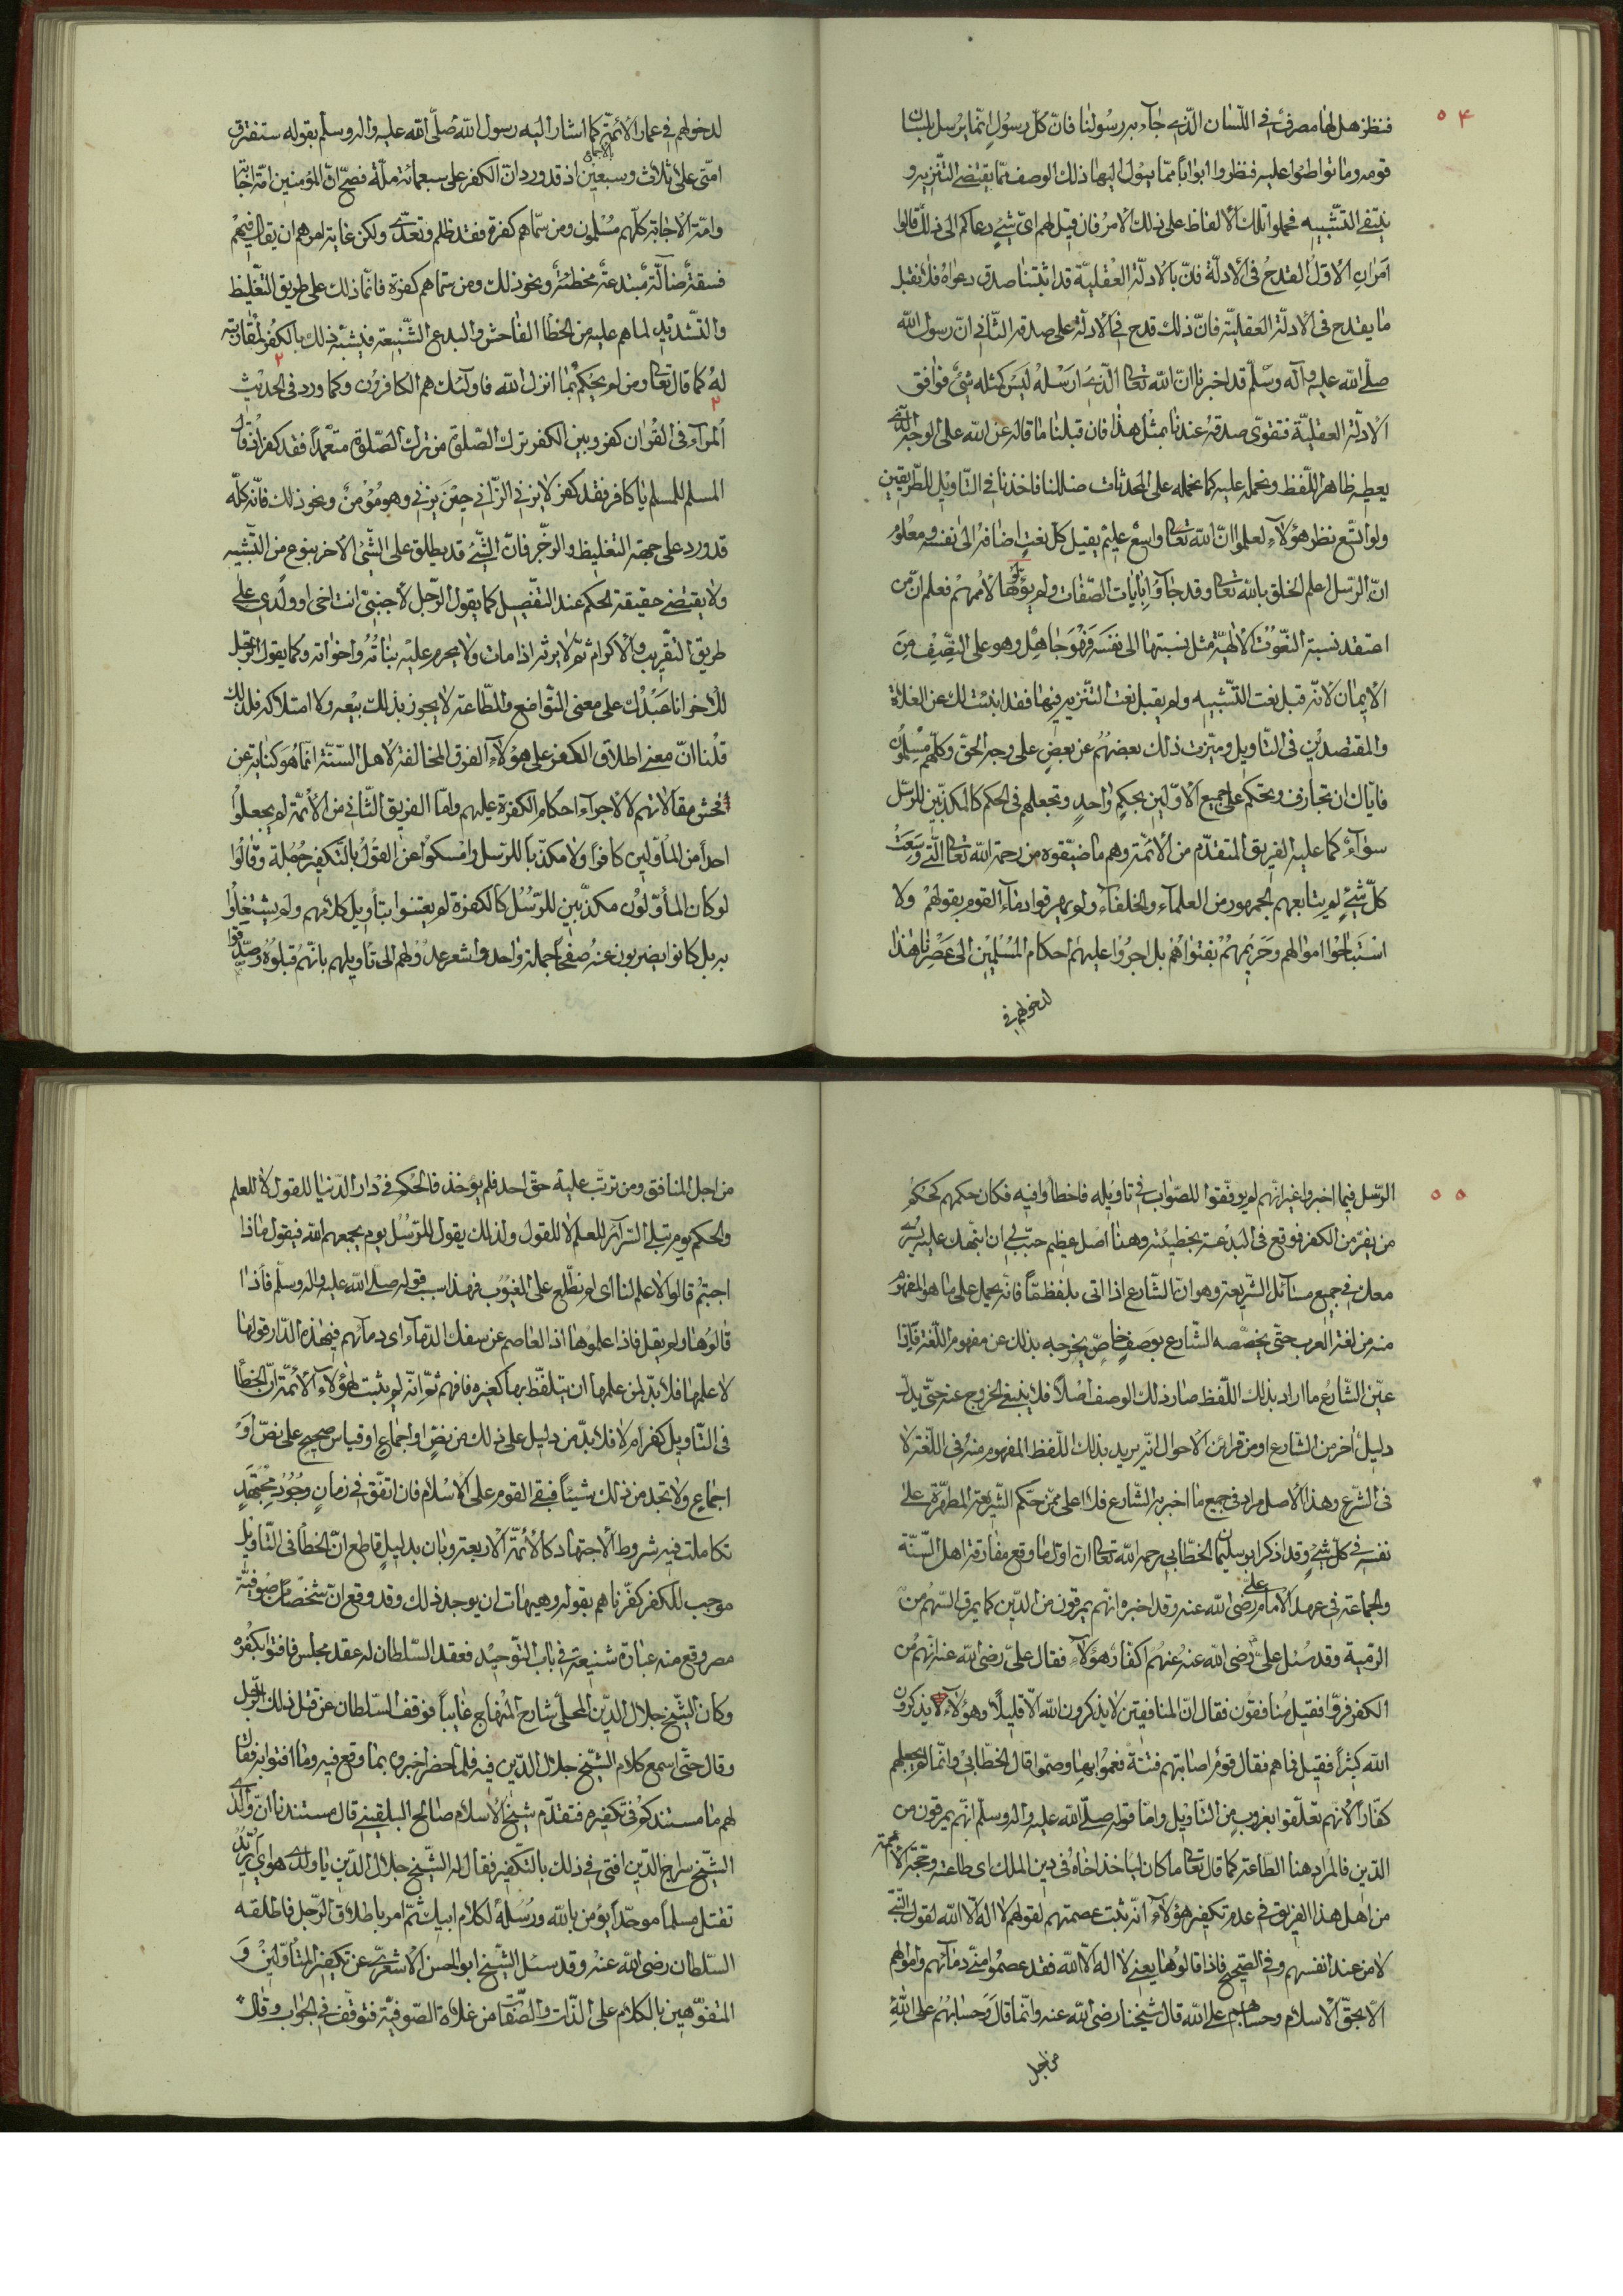 ٥٤
فنظر هل لها مصرف في اللّسان الّذي جآء به رسولنا فانّ كلّ رسول انّما يرسل بلسان
قومه وما تواطئوا عليه فنظروا ابواباً ممّا يئول اليها ذلك الوصف ممّا يقتضي التّنزيه و
ينفي التّشبيه فحملوا تلك الالفاظ على ذلك الامر فان قيل لهم ايّ شيءٍ دعاكم الى ذلك قالوا
امران الاوّل القدح في الادلّة فانّ بالادلّة العقليّة قد اثبتنا صدق دعواه فلا نقبل
ما يقدح في الادلّة العقليّة فانّ ذلك قدح في الادلّة على صدقه الثّاني انّ رسول الله
صلّى الله عليه وآله وسلّم قد اخبرنا انّ الله تعالى الّذي ارسله ليس كمثله شيء فوافق
الادلّة العقليّة فتقوّى صدقه عندنا بمثل هذا فان قبلنا ما قاله عن الله على الوجه الّذي
يعطيه ظاهر اللّفظ ونحمله عليه كما نحمله على المحدثات ضللنا فاخذنا في التّاويل للطّريقين
ولو اتّسع نظر هؤلاء لعلموا انّ الله تعالى واسع عليم يقبل كلّ نعتٍ اضافه الى نفسه ومعلوم
انّ الرّسل اعلم الخلق بالله تعالى وقد جآؤا بايات الصّفات ولم يؤوّلوها لاممهم فعلم انّ من
اعتقد نسبة النّعوت الالهيّة مثل نسبتها الى نفسه فهو جاهل وهو على النّصف من
الايمان لانّه قبل نعت التّشبيه ولم يقبل نعت التّنزيه فيها فقد ابنت لك عن الغلاة
والمقتصدين في التّاويل وميّزت ذلك بعضهم عن بعض على وجه الحقّ وكلّهم مسلمون
فايّاك ان تجازف وتحكم على جميع الاوّلين بحكم واحدٍ وتجعلهم في الحكم كالمكذّبين للرّسل
سوآء كما عليه الفريق المتقدّم من الائمّة وهم ما ضيّقوه من رحمة الله تعالى الّتي وسعت
كلّ شيءٍ لم يتابعهم الجمهور من العلمآء والخلفآء ولم يهرقوا دمآء القوم بقولهم ولا
استباحوا اموالهم وحريمهم بفتواهم بل اجروا عليهم احكام المسلمين الى عصرنا هذا
لدخولهم في
لدخولهم في عمار الائمّة كما اشار اليه رسول الله صلّى الله عليه واله وسلّم بقوله ستفترق
امّتي على ثلاث وسبعين اذ قد ورد انّ الكفر على سبعمائة ملّة فصحّ انّ المؤمنين امّة اجابة
وامّة الاجابة كلّهم مسلمون ومن سمّاهم كفرة فقد ظلم وتعدّى ولكن غاية امرهم ان يقال فيهم
فسقةٌ ضآلّة مبتدعة مخطئة ونحو ذلك ومن سمّاهم كفرة فانّما ذلك على طريق التّغليظ
والتّشديد لما هم عليه من الخطا الفاحش والبدع الشّنيعة فيشبّه ذلك بالكفر لمقاربته
له كما قال تعالى ومن لم يحكم بما انزل الله فاولئك هم الكافرون وكما ورد في الحديث
المرآء في القران كفر وبين الكفر ترك الصّلوة من ترك الصّلوة متعمّداً فقد كفر اذا قال
المسلم للمسلم يا كافر فقد كفر لا يزني الزّاني حين يزني وهو مؤمن ونحو ذلك فانّه كلّه
قد ورد على جهة التغليظ والزّجر فانّ الشّيء قد يطلق على الشّيء الاخر بنوع من التّشبيه
ولا يقتضي حقيقة الحكم عند التّفصيل كما يقول الرّجل لاجنبيّ انت اخي او ولدي على
طريق التّقريب والاكرام ثمّ لا يرثه اذا مات ولا يحرم عليه بناته واخواته وكما يقول الرّجل
للاخر انا عبدك على معنى التّواضع والطّاعة لا يجوز بذلك بيعه ولا امتلاكه فلذلك
قلنا انّ معنى اطلاق الكفر على هؤلآء الفرق المخالفة لاهل السّنّة انّما هو كناية عن
فحش مقالاتهم لا لاجرآء احكام الكفرة عليهم وامّا الفريق الثّاني من الائمّة لم يجعلوا
احداً من المأوّلين كافراً ولا مكذّباً للرّسل وامسكوا عن القول بالتّكفير جملة وقالوا
لو كان المأوّلون مكذّبين للرّسل كالكفرة لم يعتنوا بتأويل كلامهم ولم يشتغلوا
به بل كانوا يضربون عنه صفحاً جملة واحد واشعر عدولهم الى تاويلهم بانّهم قبلوه وصدّقوا
٥٥
الرّسل فيما اخبروا غير انّهم لم يوفّقوا للصّواب في تاويله فاخطأوا فيه فكان حكمهم كحكم
من يفرّ من الكفر فوقع في البدعة بخطيئته وهنا اصل عظيم حبّب لي ان انبّهك عليه يسري
معك في جميع مسآئل الشّريعة وهو انّ الشّارع اذا اتى بلفظ مّا فانّه يحمل على ما هو المفهوم
منه من لغة العرب حتّى يخصّصه الشّارع بوصف خاصّ يخرجه بذلك عن مفهوم اللّغة فاذا
عيّن الشّارع ما اراد بذلك اللّفظ صار ذلك الوصف اصلاً فلا ينبغي الخروج عنه حتّى يدلّ
دليل اخر من الشارع او من قرائن الاحوال انّه يريد بذلك اللّفظ المفهوم منه في اللّغة لا
في الشرع وهذا الاصل مراد في جميع ما اخبر به الشّارع فلا اعلى ممّن حكم الشّريعة المطهّرة على
نفسه في كلّ شيءٍ وقد ذكر ابو سليمان الخطّابي رحمه الله تعالى انّ اوّل ما وقع مفارقة اهل السّنّة
والجماعة في عهد الامام عليّ رضي الله عنه وقد اخبره انّهم يمرقون من الدّين كما يمرق السّهم من
الرّميّة وقد سئل عليّ رضي الله عنه عنهم اكفّار هؤلآء فقال عليّ رضي الله عنه انّهم من
الكفر فرّوا فقيل منافقون فقال انّ المنافقين لا يذكرون الله الّا قليلاً وهؤلآء يذكرون
الله كثيراً فقيل فما هم فقال قوم اصابتهم فتنة فعموا بها وصمّوا قال الخطّابيّ وانّما لم يجعلهم
كفّاراً لانهم تعلّقوا بضرب من التّاويل وامّا قوله صلّى الله عليه واله وسلّم انّهم يمرقون من
الدّين فالمراد هنا الطّاعة كما قال تعالى ما كان لياخذ اخاه في دين الملك اى طاعته وحجّة الائمّة
من اهل هذا الفريق في عدم تكفير هؤلآء انّه ثبت عصمتهم لقولهم لا اله الّا الله لقول النّبيّ
لا من عند انفسهم وفي الصّحيح فاذا قالوها يعني لا اله الّا الله فقد عصموا منّي دمآئهم واموالهم
الّا بحقّ الاسلام وحسابهم على الله قال شيخنا رضي الله عنه وانّما قال وحسابهم على الله
من اجل
من اجل المنافق ومن ترتّب عليه حقّ احد فلم يؤخذ فالحكم في دار الدّنيا للقول لا للعلم
والحكم يوم تبلى السّرآئر للعلم لا للقول ولذلك يقول للرّسل يوم يجمعهم الله فيقول ماذا
اجبتم قالوا لا علم لنا اى لم نطّلع على الغيوب فهذا سبب قوله صلّى الله عليه واله وسلّم فاذا
قالوها ولم يقل فاذا علموها اذ العاصم عن سفك الدّمآء اى دمآئهم في هذه الدّار قولها
لا علمها فلا بدّ لمن علمها ان يتلفّظ بها كغيره فافهم ثمّ انّه لم يثبت لهؤلآء الائمّة انّ الخطأ
في التّاويل كفر ام لا فلا بدّ من دليل على ذلك من نصّ او اجماع او قياس صحيح على نصّ او
اجماع ولا تجد من ذلك شيئاً فبقي القوم على الاسلام فان اتّفق في زمان وجود مجتهد
تكاملت فيه شروط الاجتهاد كالائمّة الاربعة وبان بدليل قاطع انّ الخطا في التّاويل
موجب للكفر كفّرناهم بقوله وهيهات ان يوجد ذلك وقد وقع انّ شخصاً من صوفيّة
مصر وقع منه عبارة شنيعة في باب التّوحيد فعقد السّلطان له عقد مجلس فافتوا بكفره
وكان الشّيخ جلال الدّين المحلّي شارح المنهاج غايباً فوقف السّلطان عن قتل ذلك الرّجل
وقال حتّى اسمع كلام الشّيخ جلال الدّين فيه فلمّا حضر اخبروه بما وقع فيه وما افتوا به فقال
لهم ما مستندكم في تكفيره فتقدّم شيخ الاسلام صالح البلقيني قال مستندنا انّ والدي
الشّيخ سراج الدّين افتى في ذلك بالتّكفير فقال له الشّيخ جلال الدّين يا ولدي هو اي تريد
تقتل مسلماً موحّداً يؤمن بالله ورسله لكلام ابيك ثمّ امر باطلاق الرّجل فاطلقه
السّلطان رضي الله عنه وقد سئل الشّيخ ابو الحسن الاشعري عن تكفير المتأوّلين و
المتفوّهين بالكلام على الذّات والصّفات من غلاة الصّوفيّة فتوقّف في الجواب وقال